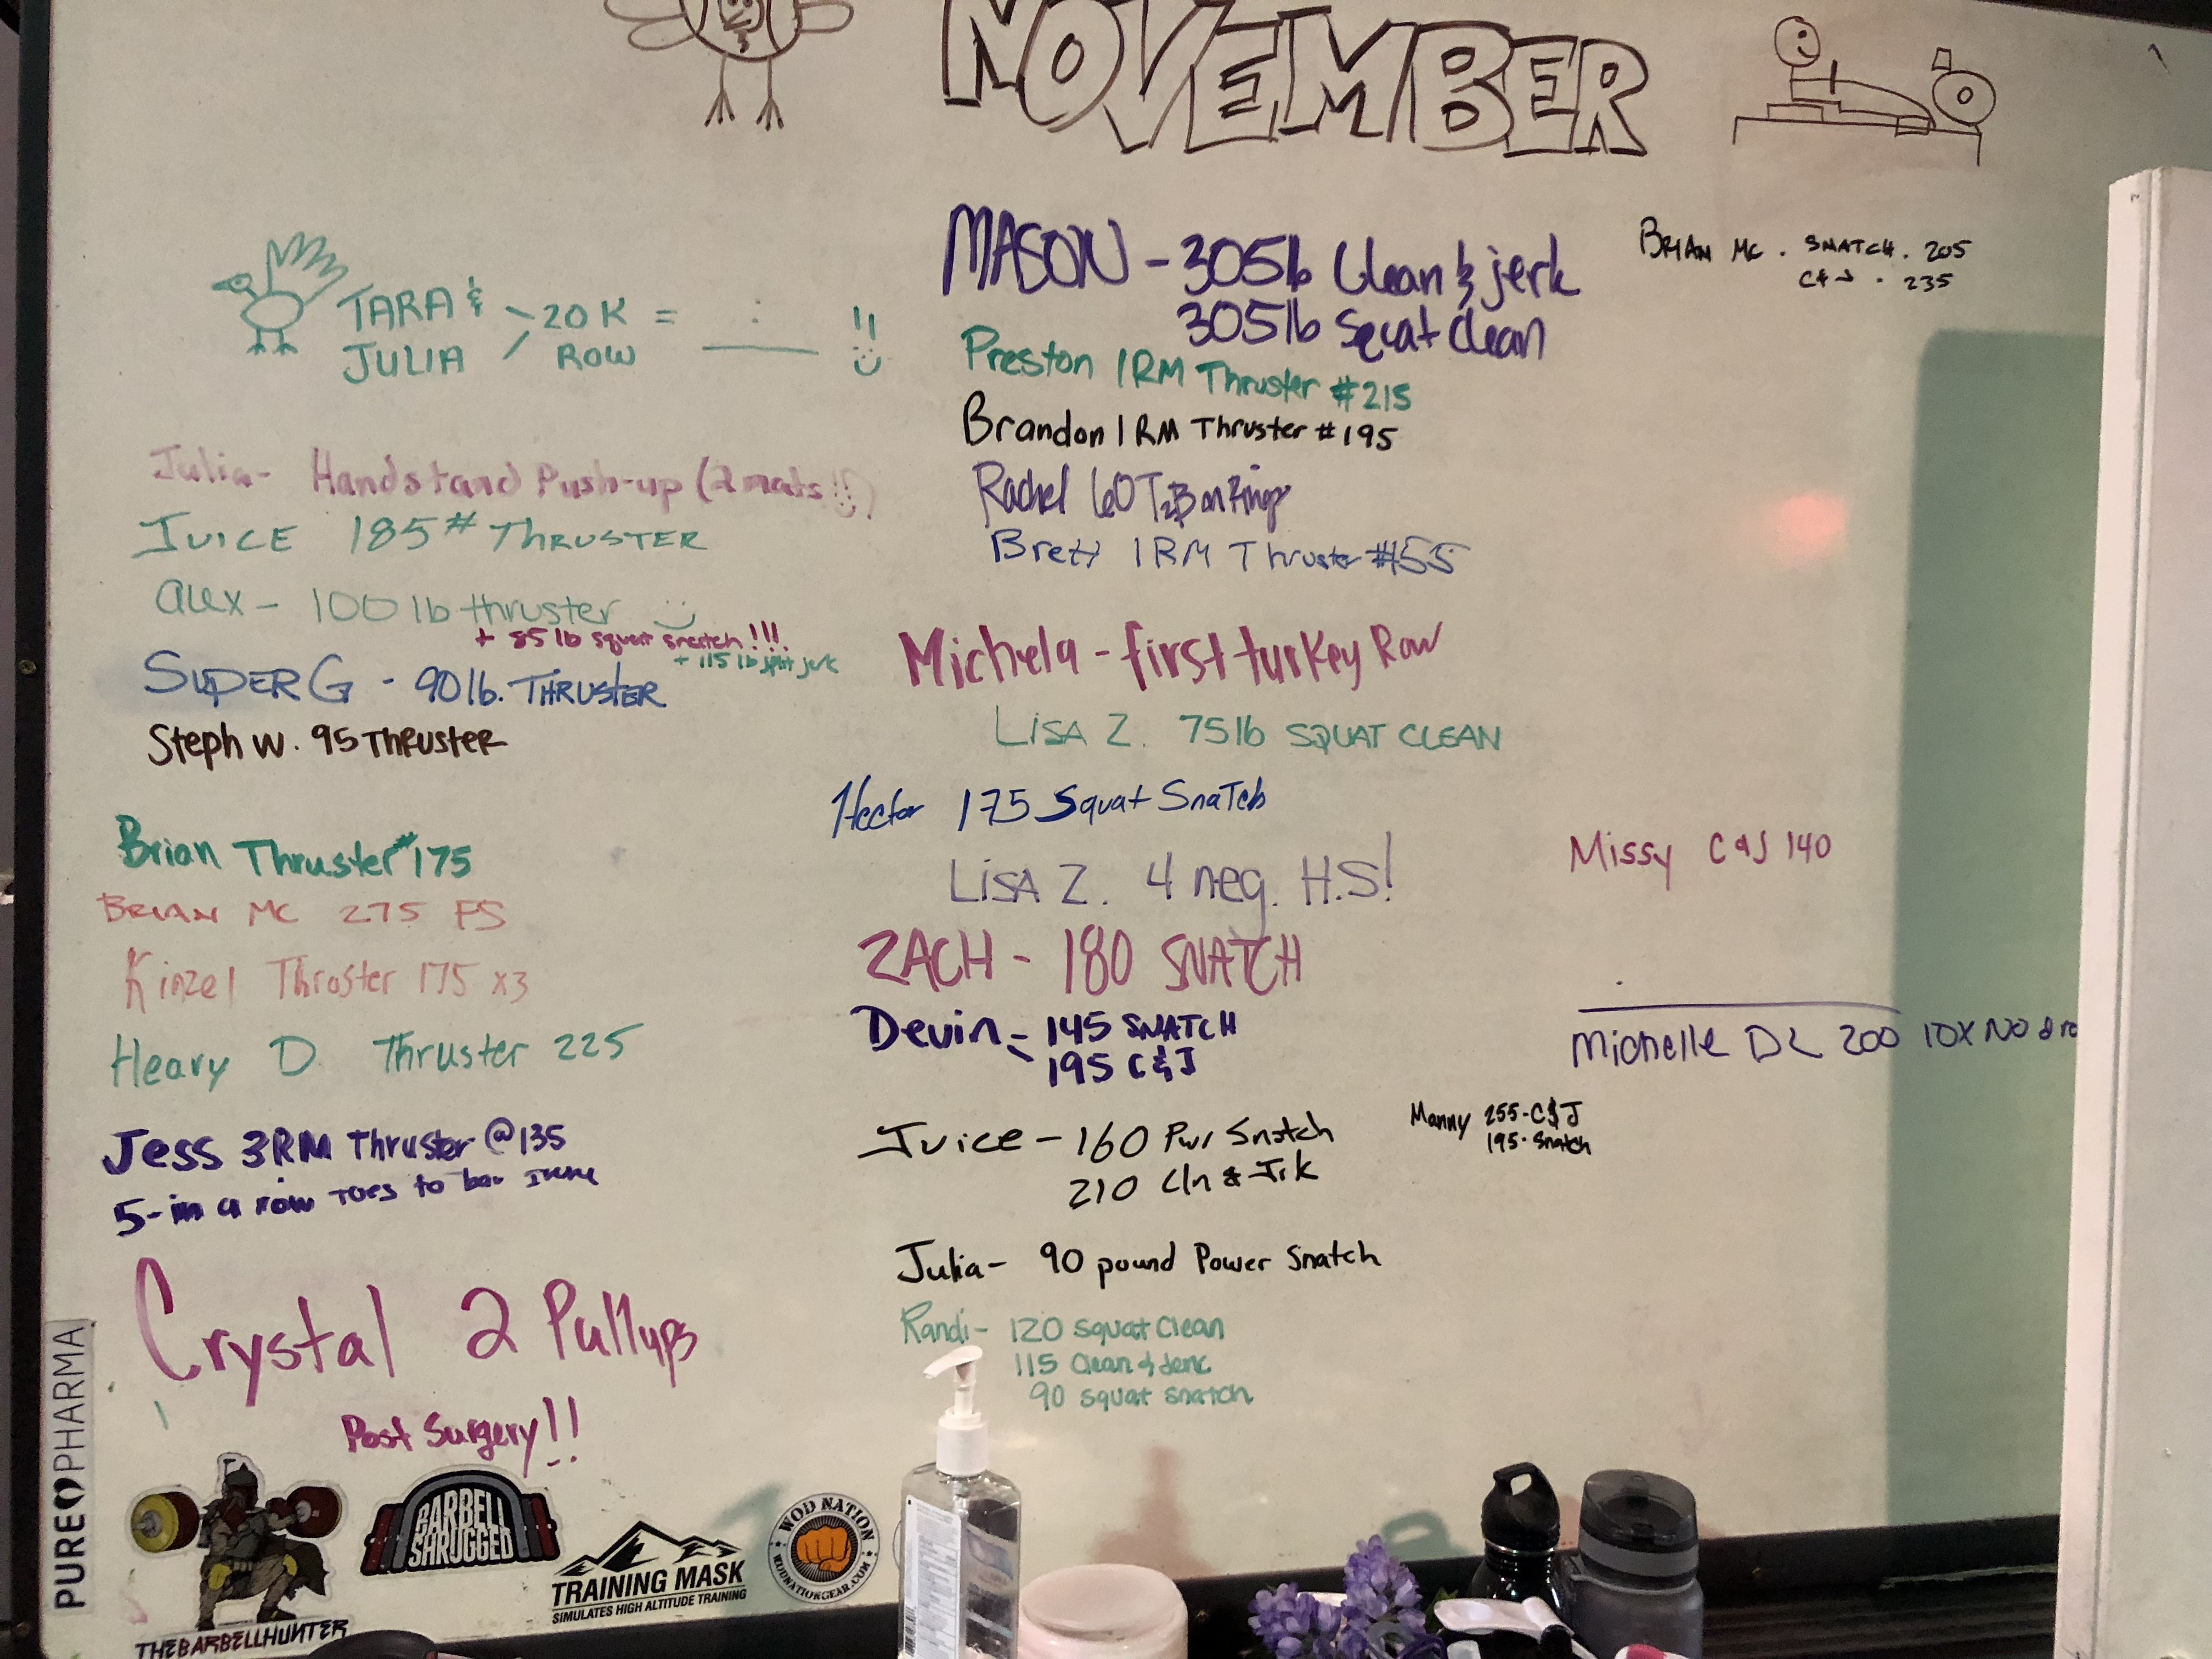 NOVEMBER
TARA & JULIA > 20 K ROW = __:__ !!
Julia- Handstand Push-up (2 mats!!)
JUICE 185# THRUSTER
alex - 100 lb thruster
+ 85 lb squat snatch!!!
+ 115 lb split jerk
SUPER G - 90 lb. THRUSTER
Steph W. 95 Thruster
Brian Thruster #175
BRIAN MC 275 FS
Kinzel Thruster 175 x3
Heavy D Thruster 225
Jess 3RM Thruster @135
5-in a row Toes to bar
Crystal 2 Pullups
Post Surgery!!
MASON - 305lb Clean & jerk
305lb Squat Clean
Preston 1RM Thruster #215
Brandon 1RM Thruster #195
Rachel 60 T2B on Rings
Brett 1RM Thruster #55
Michela - first turkey Row
LISA Z. 75lb SQUAT CLEAN
Hector 175 Squat Snatch
LISA Z. 4 neg. H.S!
ZACH - 180 SNATCH
Devin - 145 SNATCH
- 195 C&J
Juice - 160 Pwr Snatch
210 Cln & Jrk
Julia- 90 pound Power Snatch
Randi- 120 squat clean
115 Clean & Jerk
90 squat snatch
BRIAN MC. SNATCH. 205
C&J. 235
Missy C&J 140
Michelle DL 200 10X NO dro
Manny 255-C&J
195-Snatch
PURE PHARMA
THEBARBELLHUNTER
BARBELL
SHRUGGED
TRAINING MASK
SIMULATES HIGH ALTITUDE TRAINING
WOD NATION
WODNATIONGEAR.COM